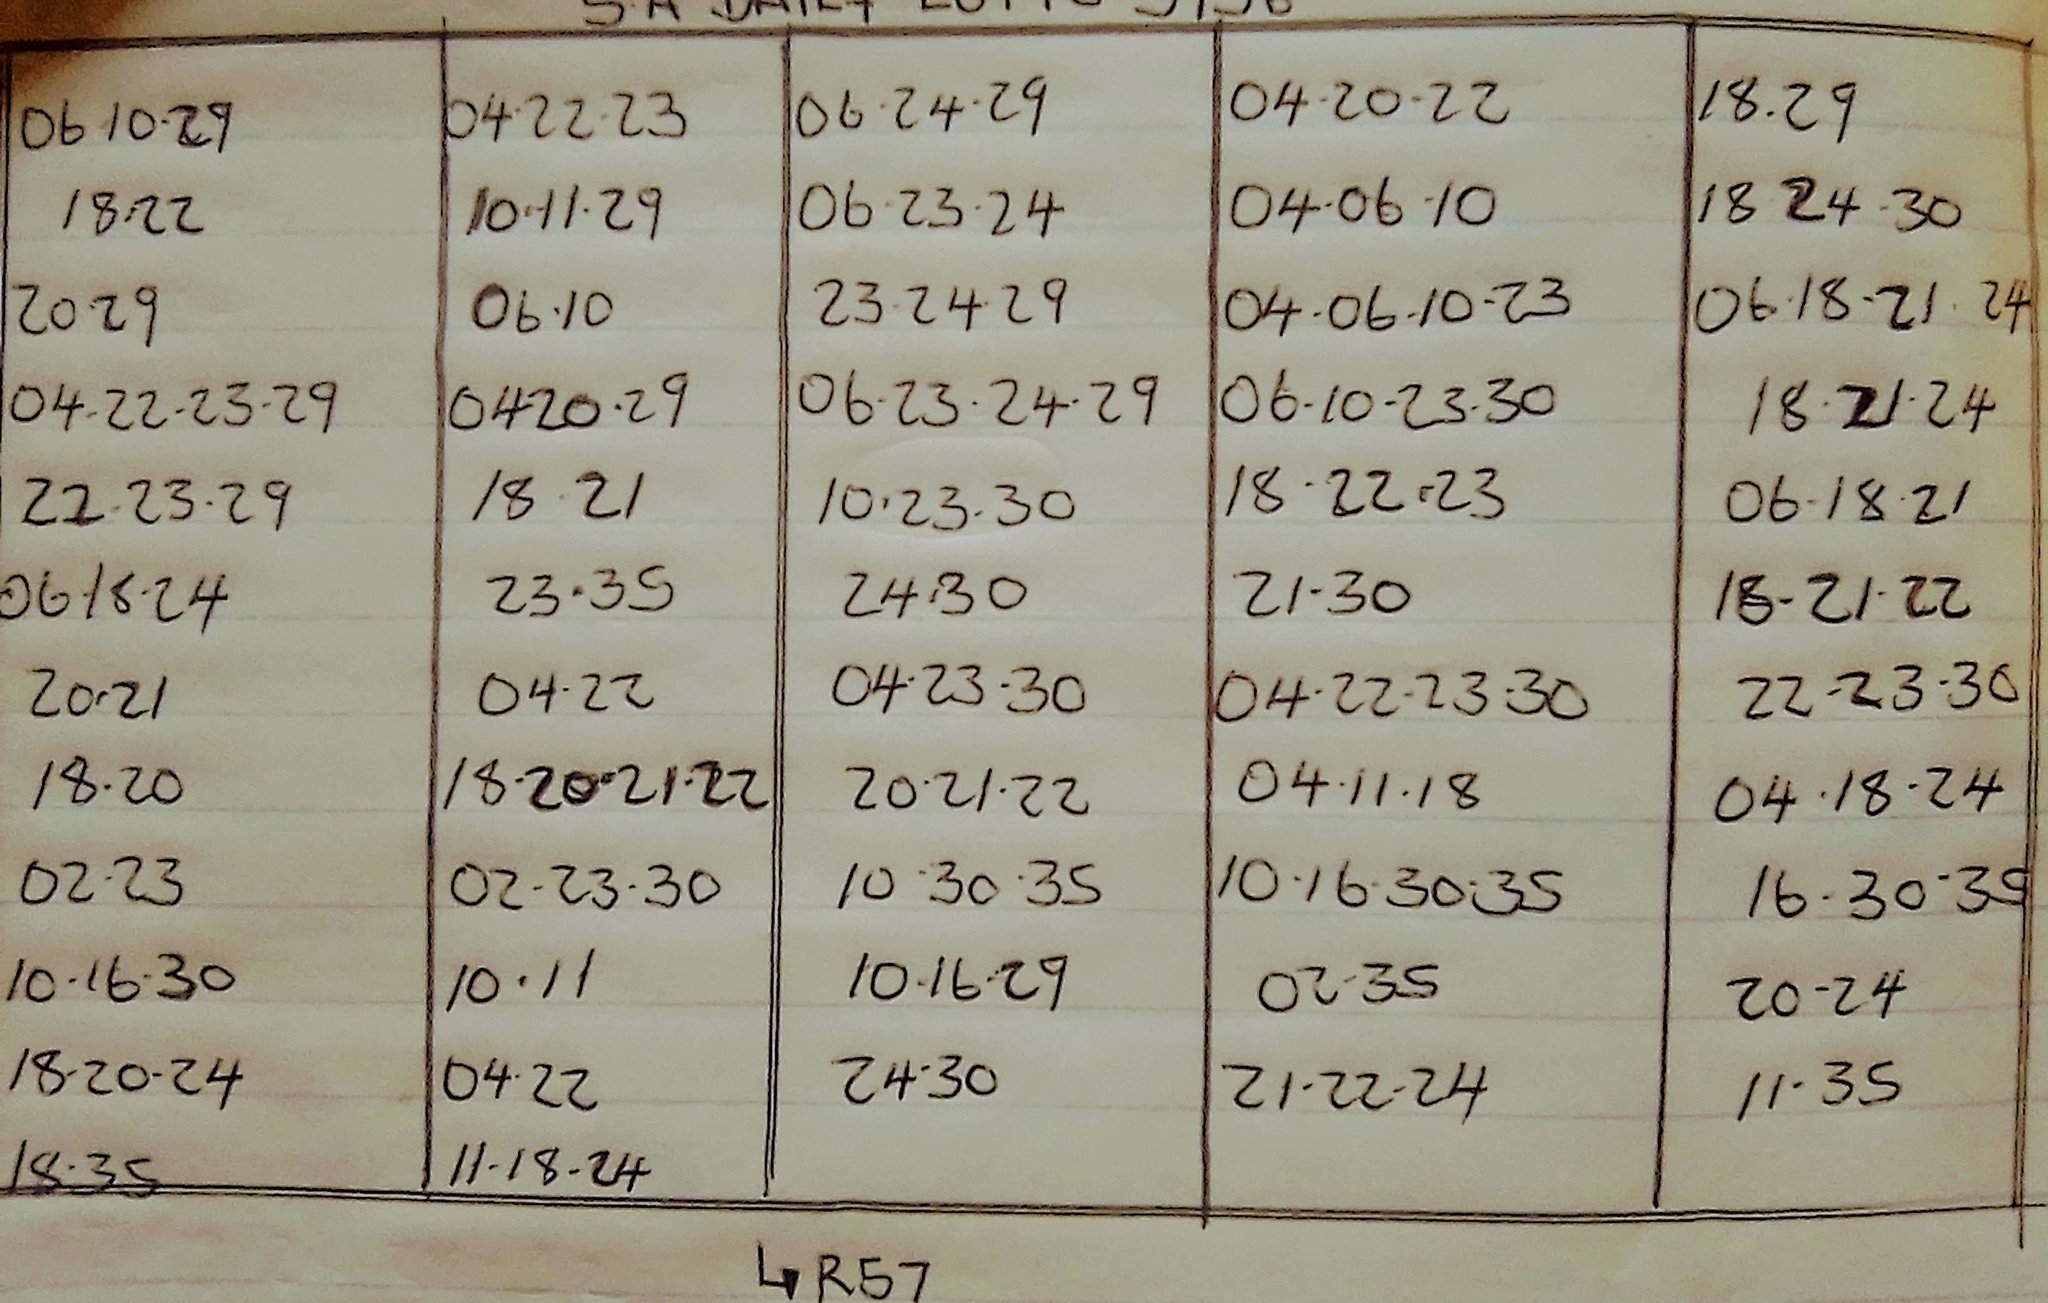 S.A DAILY LOTTO 5/36
06·10·29 04·22·23 06·24·29 04·20·22 18·29
18·22 10·11·29 06·23·24 04·06·10 18 24·30
20·29 06·10 23·24·29 04·06·10·23 06·18·21·24
04·22·23·29 0420·29 06·23·24·29 06·10·23·30 18·21·24
22·23·29 18·21 10·23·30 18·22·23 06·18·21
06·18·24 23·35 24·30 21·30 18·21·22
20·21 04·22 04·23·30 04·22·23·30 22·23·30
18·20 18·20·21·22 20·21·22 04·11·18 04·18·24
02·23 02·23·30 10·30·35 10·16·30·35 16·30·35
10·16·30 10·11 10·16·29 02·35 20·24
18·20·24 04·22 24·30 21·22·24 11·35
18·35 11·18·24
↳ R57